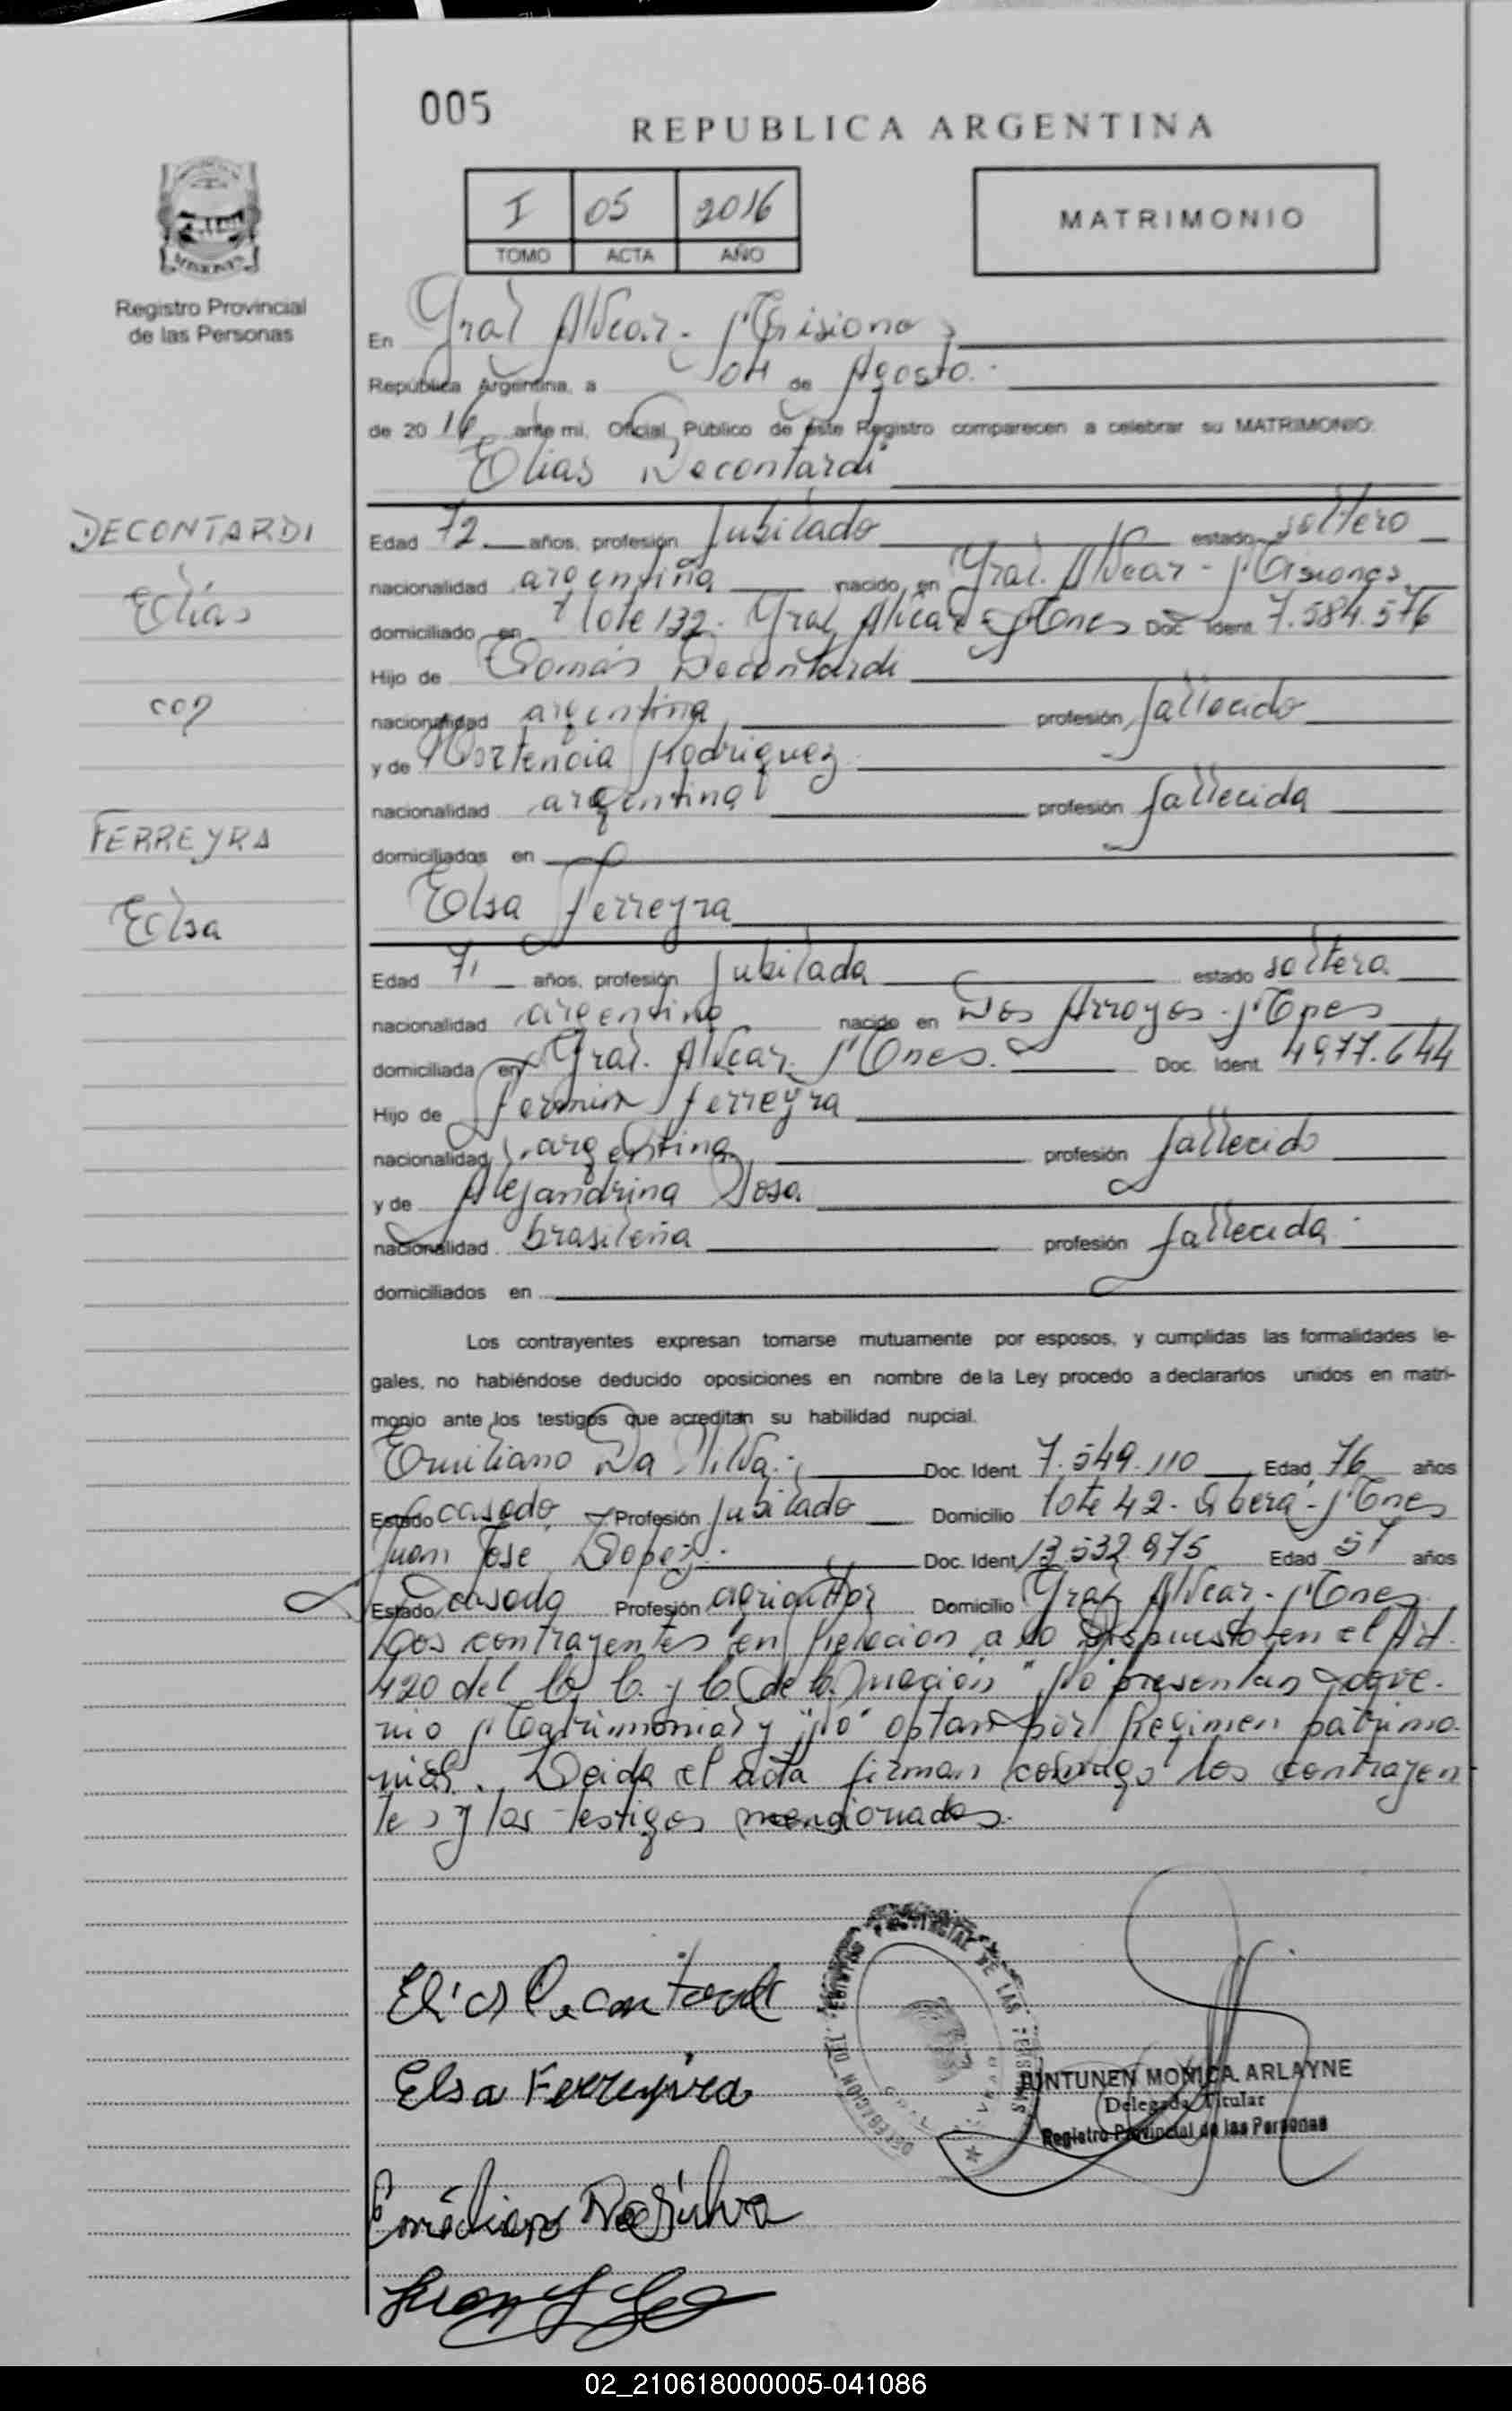 005
REPUBLICA ARGENTINA
I 05 2016
TOMO ACTA AÑO
MATRIMONIO
Registro Provincial
de las Personas
En Gral Alvear - Misiones
República Argentina, a 04 de Agosto
de 2016 ante mi, Oficial Público de éste Registro comparecen a celebrar su MATRIMONIO:
Elias Decontardi
DECONTARDI
Elías
con
FERREYRA
Elsa
Edad 72 años, profesión Jubilado estado soltero
nacionalidad argentina nacido en Gral. Alvear - Misiones
domiciliado en lote 132. Gral Alvear - Mnes Doc. Ident. 7.584.576
Hijo de Tomás Decontardi
nacionalidad argentina profesión fallecido
y de Hortencia Rodriguez
nacionalidad argentina profesión fallecida
domiciliados en
Elsa Ferreyra
Edad 71 años, profesión Jubilada estado soltera
nacionalidad argentina nacido en Dos Arroyos - Mnes
domiciliada en Gral. Alvear. Mnes. Doc. Ident. 4977.644
Hijo de Fermin Ferreyra
nacionalidad argentina profesión fallecido
y de Alejandrina Sosa
nacionalidad brasileña profesión fallecida
domiciliados en
Los contrayentes expresan tomarse mutuamente por esposos, y cumplidas las formalidades le-
gales, no habiéndose deducido oposiciones en nombre de la Ley procedo a declararlos unidos en matri-
monio ante los testigos que acreditan su habilidad nupcial.
Emiliano Da Silva Doc. Ident. 7.549.110 Edad 76 años
Estado casado Profesión Jubilado Domicilio lote 42 - Oberá - Mnes
Juan José Lopez Doc. Ident. 13.532.975 Edad 57 años
Estado casado Profesión agricultor Domicilio Gral Alvear - Mnes
Los contrayentes en Relacion a lo Dispuesto en el Art.
420 del C. C. y C. de la Nación "No" presentan conve-
nio Matrimonial y "No" optan por Regimen patrimo-
nial. Leida el acta firman conmigo los contrayen
tes y los testigos mencionados.
Elias Decontardi
Elsa Ferreyra
DELEGACION DEL REGISTRO PROVINCIAL DE LAS PERSONAS
JUNTUNEN MONICA ARLAYNE
Delegada Titular
Registro Provincial de las Personas
Emiliano Da Silva
02_210618000005-041086